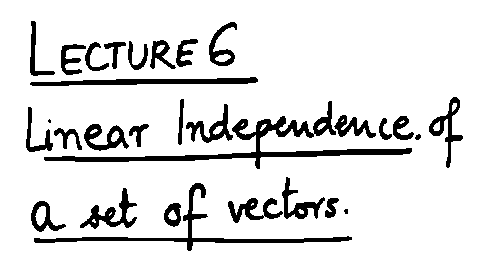 LECTURE 6
Linear Independence. of
a set of vectors.